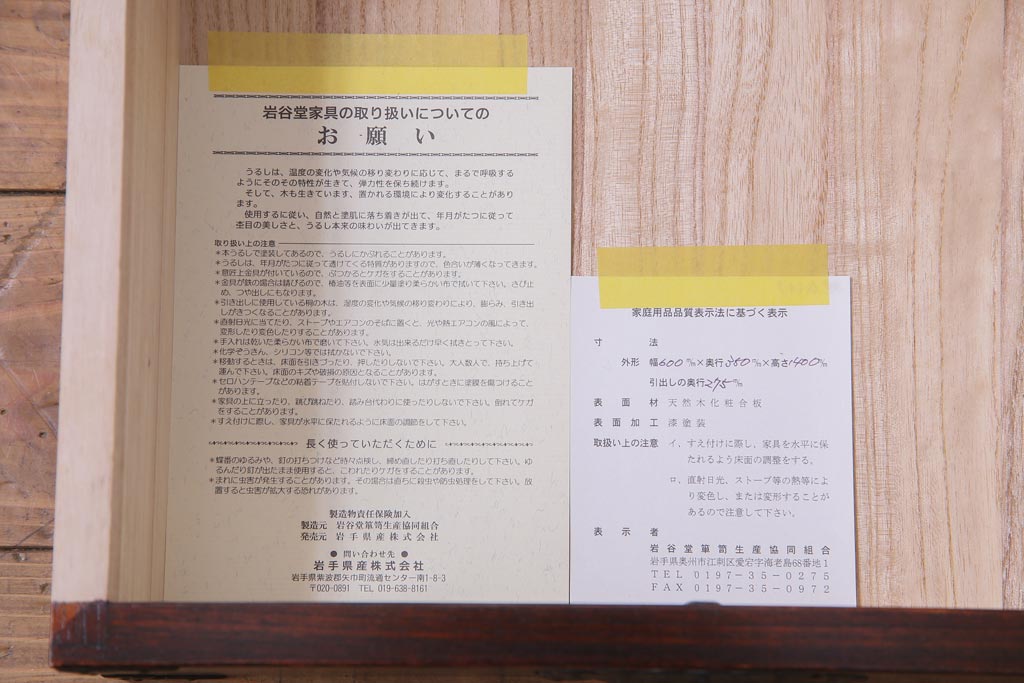 岩谷堂家具の取り扱いについての
お願い
うるしは、温度の変化や気候の移り変わりに応じて、まるで呼吸する
ようにそのその特性が生きて、弾力性を保ち続けます。
そして、木も生きています、置かれる環境により変化することがあり
ます。
使用するに従い、自然と塗肌に落ち着きが出て、年月がたつに従って
杢目の美しさと、うるし本来の味わいが出てきます。
取り扱い上の注意
＊本うるしで塗装してあるので、うるしにかぶれることがあります。
＊うるしは、年月がたつに従って透けてくる特質がありますので、色合いが薄くなってきます。
＊意匠上金具が付いているので、ぶつかるとケガをすることがあります。
＊金具が鉄の場合は錆びるので、椿油等を表面に少量塗り柔らかい布で拭いて下さい。さび止
め、つや出しにもなります。
＊引き出しに使用している桐の木は、湿度の変化や気候の移り変わりにより、膨らみ、引き出
しがきつくなることがあります。
＊直射日光に当てたり、ストーブやエアコンのそばに置くと、光や熱エアコンの風によって、
変形したり変色したりすることがあります。
＊手入れは乾いた柔らかい布で磨いて下さい。水気は出来るだけ早く拭きとって下さい。
＊化学ぞうきん、シリコン等では拭かないで下さい。
＊移動するときは、床面を引きづったり、押したりしないで下さい。大人数人で、持ち上げて
運んで下さい。床面のキズや破損の原因となることがあります。
＊セロハンテープなどの粘着テープを貼付しないで下さい。はがすときに塗膜を傷つけること
があります。
＊家具の上に立ったり、跳び跳ねたり、踏み台代わりに使ったりしないで下さい。倒れてケガ
をすることがあります。
＊すえ付けに際し、家具が水平に保たれるように床面の調節をして下さい。
長く使っていただくために
＊蝶番のゆるみや、釘の打ちつけなど時々点検し、締め直したり打ち直したりして下さい。ゆ
るんだり釘が出たまま使用すると、こわれたりケガをすることがあります。
＊まれに虫害が発生することがあります。その場合は直ちに殺虫や防虫処理をして下さい。放
置すると虫害が拡大する恐れがあります。
製造物責任保険加入
製造元 岩谷堂簞笥生産協同組合
発売元 岩手県産株式会社
● 問い合わせ先 ●
岩手県産株式会社
岩手県紫波郡矢巾町流通センター南1-8-3
〒020-0891 TEL 019-638-8161
家庭用品品質表示法に基づく表示
寸法
外形 幅600㎜×奥行380㎜×高さ1400㎜
引出しの奥行275㎜
表面材 天然木化粧合板
表面加工 漆塗装
取扱い上の注意 イ、すえ付けに際し、家具を水平に保
たれるよう床面の調整をする。
ロ、直射日光、ストーブ等の熱等によ
り変色し、または変形することが
あるので注意して下さい。
表示者
岩谷堂簞笥生産協同組合
岩手県奥州市江刺区愛宕字海老島68番地1
TEL 0197-35-0275
FAX 0197-35-0972